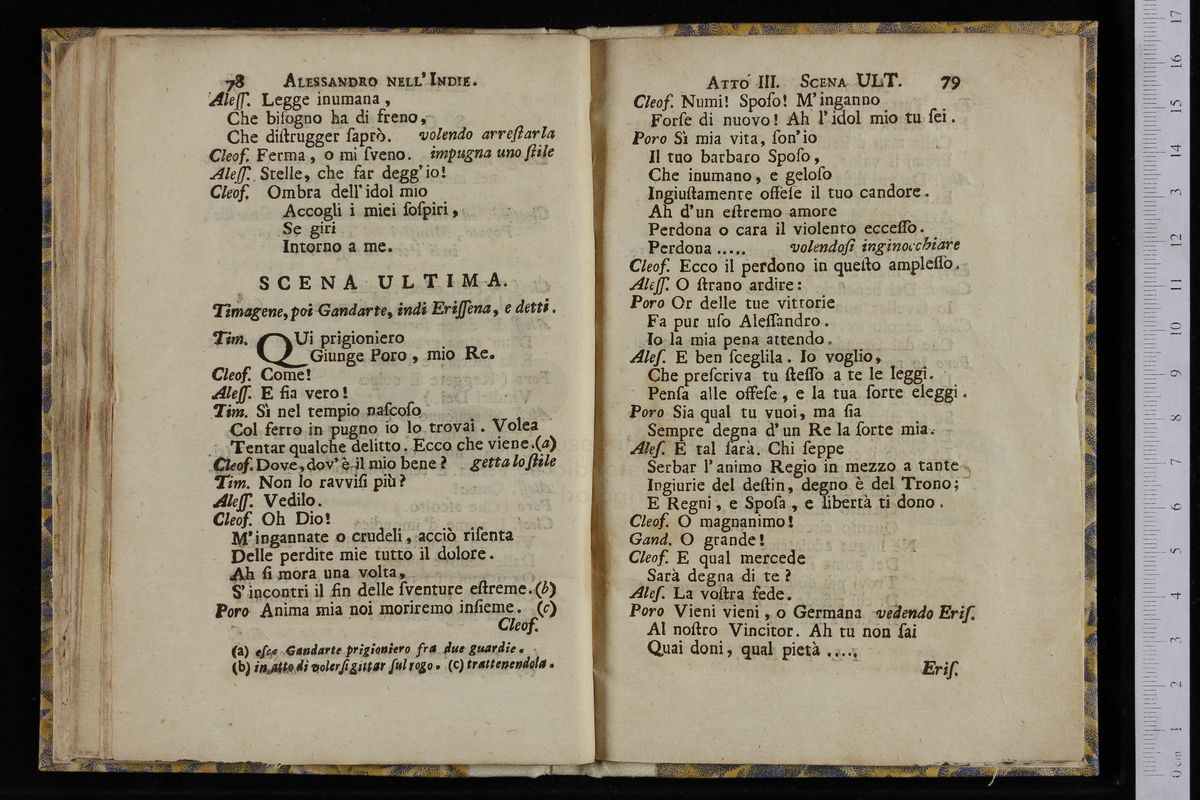 78 ALESSANDRO NELL'INDIE.
Aleſſ. Legge inumana,
Che biſogno ha di freno,
Che diſtrugger ſaprò. volendo arreſtarla
Cleof. Ferma, o mi ſveno. impugna uno ſtile
Aleſſ. Stelle, che far degg'io!
Cleof. Ombra dell'idol mio
Accogli i miei ſoſpiri,
Se giri
Intorno a me.
SCENA ULTIMA.
Timagene, poi Gandarte, indi Eriſſena, e detti.
Tim. QUi prigioniero
Giunge Poro, mio Re.
Cleof. Come!
Aleſſ. E fia vero!
Tim. Sì nel tempio naſcoſo
Col ferro in pugno io lo trovai. Volea
Tentar qualche delitto. Ecco che viene.(a)
Cleof. Dove, dov'è il mio bene? getta lo ſtile
Tim. Non lo ravviſi più?
Aleſſ. Vedilo.
Cleof. Oh Dio!
M'ingannate o crudeli, acciò riſenta
Delle perdite mie tutto il dolore.
Ah ſi mora una volta,
S'incontri il fin delle ſventure eſtreme.(b)
Poro Anima mia noi moriremo inſieme. (c)
Cleof.
(a) eſce Gandarte prigioniero fra due guardie.
(b) in atto di volerſi gittar ſul rogo. (c) trattenendola.
ATTO III. SCENA ULT. 79
Cleof. Numi! Spoſo! M'inganno
Forſe di nuovo! Ah l'idol mio tu ſei.
Poro Sì mia vita, ſon'io
Il tuo barbaro Spoſo,
Che inumano, e geloſo
Ingiuſtamente offeſe il tuo candore.
Ah d'un eſtremo amore
Perdona o cara il violento ecceſſo.
Perdona ..... volendoſi inginocchiare
Cleof. Ecco il perdono in queſto ampleſſo.
Aleſſ. O ſtrano ardire:
Poro Or delle tue vittorie
Fa pur uſo Aleſſandro.
Io la mia pena attendo.
Aleſ. E ben ſceglila. Io voglio,
Che preſcriva tu ſteſſo a te le leggi.
Penſa alle offeſe, e la tua ſorte eleggi.
Poro Sia qual tu vuoi, ma ſia
Sempre degna d'un Re la ſorte mia.
Aleſ. E tal ſarà. Chi ſeppe
Serbar l'animo Regio in mezzo a tante
Ingiurie del deſtin, degno è del Trono;
E Regni, e Spoſa, e libertà ti dono.
Cleof. O magnanimo!
Gand. O grande!
Cleof. E qual mercede
Sarà degna di te?
Aleſ. La voſtra fede.
Poro Vieni vieni, o Germana vedendo Eriſ.
Al noſtro Vincitor. Ah tu non ſai
Quai doni, qual pietà .....
Eriſ.
0 cm 1 2 3 4 5 6 7 8 9 10 11 12 13 14 15 16 17